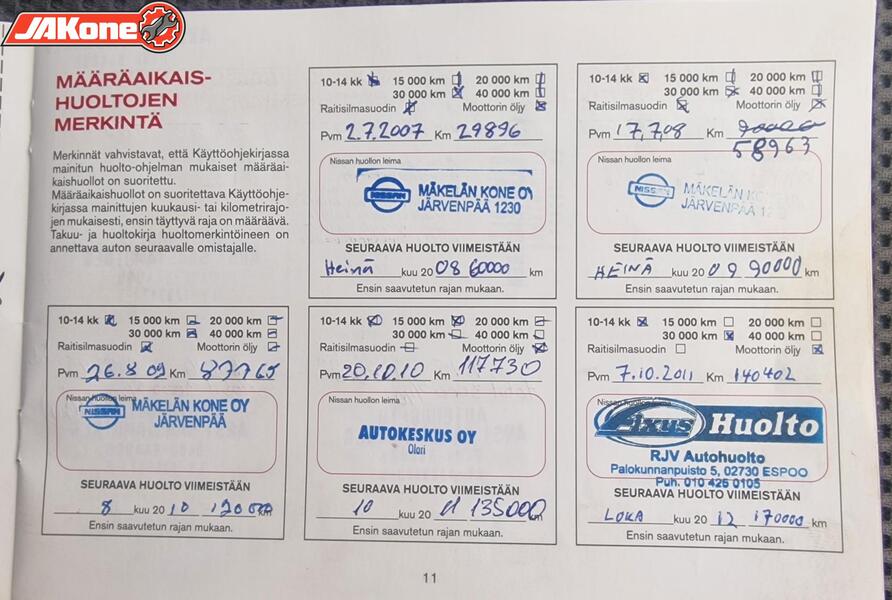 JAKone
MÄÄRÄAIKAIS-
HUOLTOJEN
MERKINTÄ
Merkinnät vahvistavat, että Käyttöohjekirjassa
mainitun huolto-ohjelman mukaiset määräai-
kaishuollot on suoritettu.
Määräaikaishuollot on suoritettava Käyttöohje-
kirjassa mainittujen kuukausi- tai kilometrirajo-
jen mukaisesti, ensin täyttyvä raja on määräävä.
Takuu- ja huoltokirja huoltomerkintöineen on
annettava auton seuraavalle omistajalle.
10-14 kk 15 000 km 20 000 km
30 000 km 40 000 km
Raitisilmasuodin Moottorin öljy
Pvm 2.7.2007 Km 29896
Nissan huollon leima
NISSAN MÄKELÄN KONE OY
JÄRVENPÄÄ 1230
SEURAAVA HUOLTO VIIMEISTÄÄN
Heinä kuu 20 08 60000 km
Ensin saavutetun rajan mukaan.
10-14 kk 15 000 km 20 000 km
30 000 km 40 000 km
Raitisilmasuodin Moottorin öljy
Pvm 17,7,08 Km
58963
Nissan huollon leima
NISSAN MÄKELÄN KO
JÄRVENPÄÄ
SEURAAVA HUOLTO VIIMEISTÄÄN
HEINÄ kuu 20 09 90000 km
Ensin saavutetun rajan mukaan.
10-14 kk 15 000 km 20 000 km
30 000 km 40 000 km
Raitisilmasuodin Moottorin öljy
Pvm 26.8 09 Km
Nissan huollon leima
NISSAN MÄKELÄN KONE OY
JÄRVENPÄÄ
SEURAAVA HUOLTO VIIMEISTÄÄN
8 kuu 20 10 120000 km
Ensin saavutetun rajan mukaan.
10-14 kk 15 000 km 20 000 km
30 000 km 40 000 km
Raitisilmasuodin Moottorin öljy
Pvm 20.10.10 Km 117730
Nissan huollon leima
AUTOKESKUS OY
Olari
SEURAAVA HUOLTO VIIMEISTÄÄN
10 kuu 20 11 135000 km
Ensin saavutetun rajan mukaan.
10-14 kk 15 000 km 20 000 km
30 000 km 40 000 km
Raitisilmasuodin Moottorin öljy
Pvm 7.10.2011 Km 140402
Nissan huollon leima
Axus Huolto
RJV Autohuolto
Palokunnanpuisto 5, 02730 ESPOO
Puh. 010 425 0105
SEURAAVA HUOLTO VIIMEISTÄÄN
LOKA kuu 20 12 170000 km
Ensin saavutetun rajan mukaan.
11